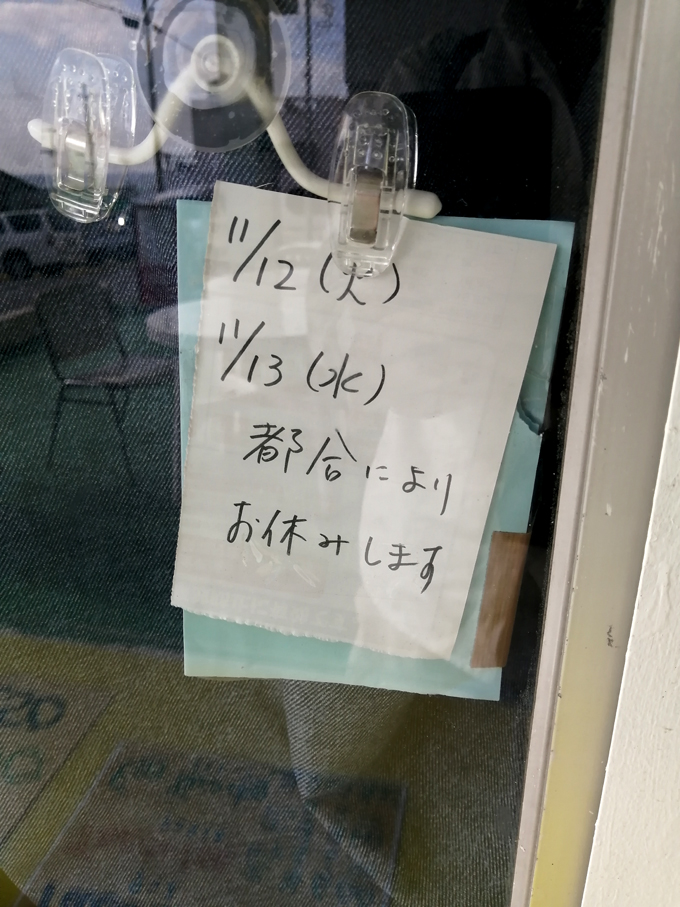 11/12 (火)
11/13 (水)
都合により
お休みします